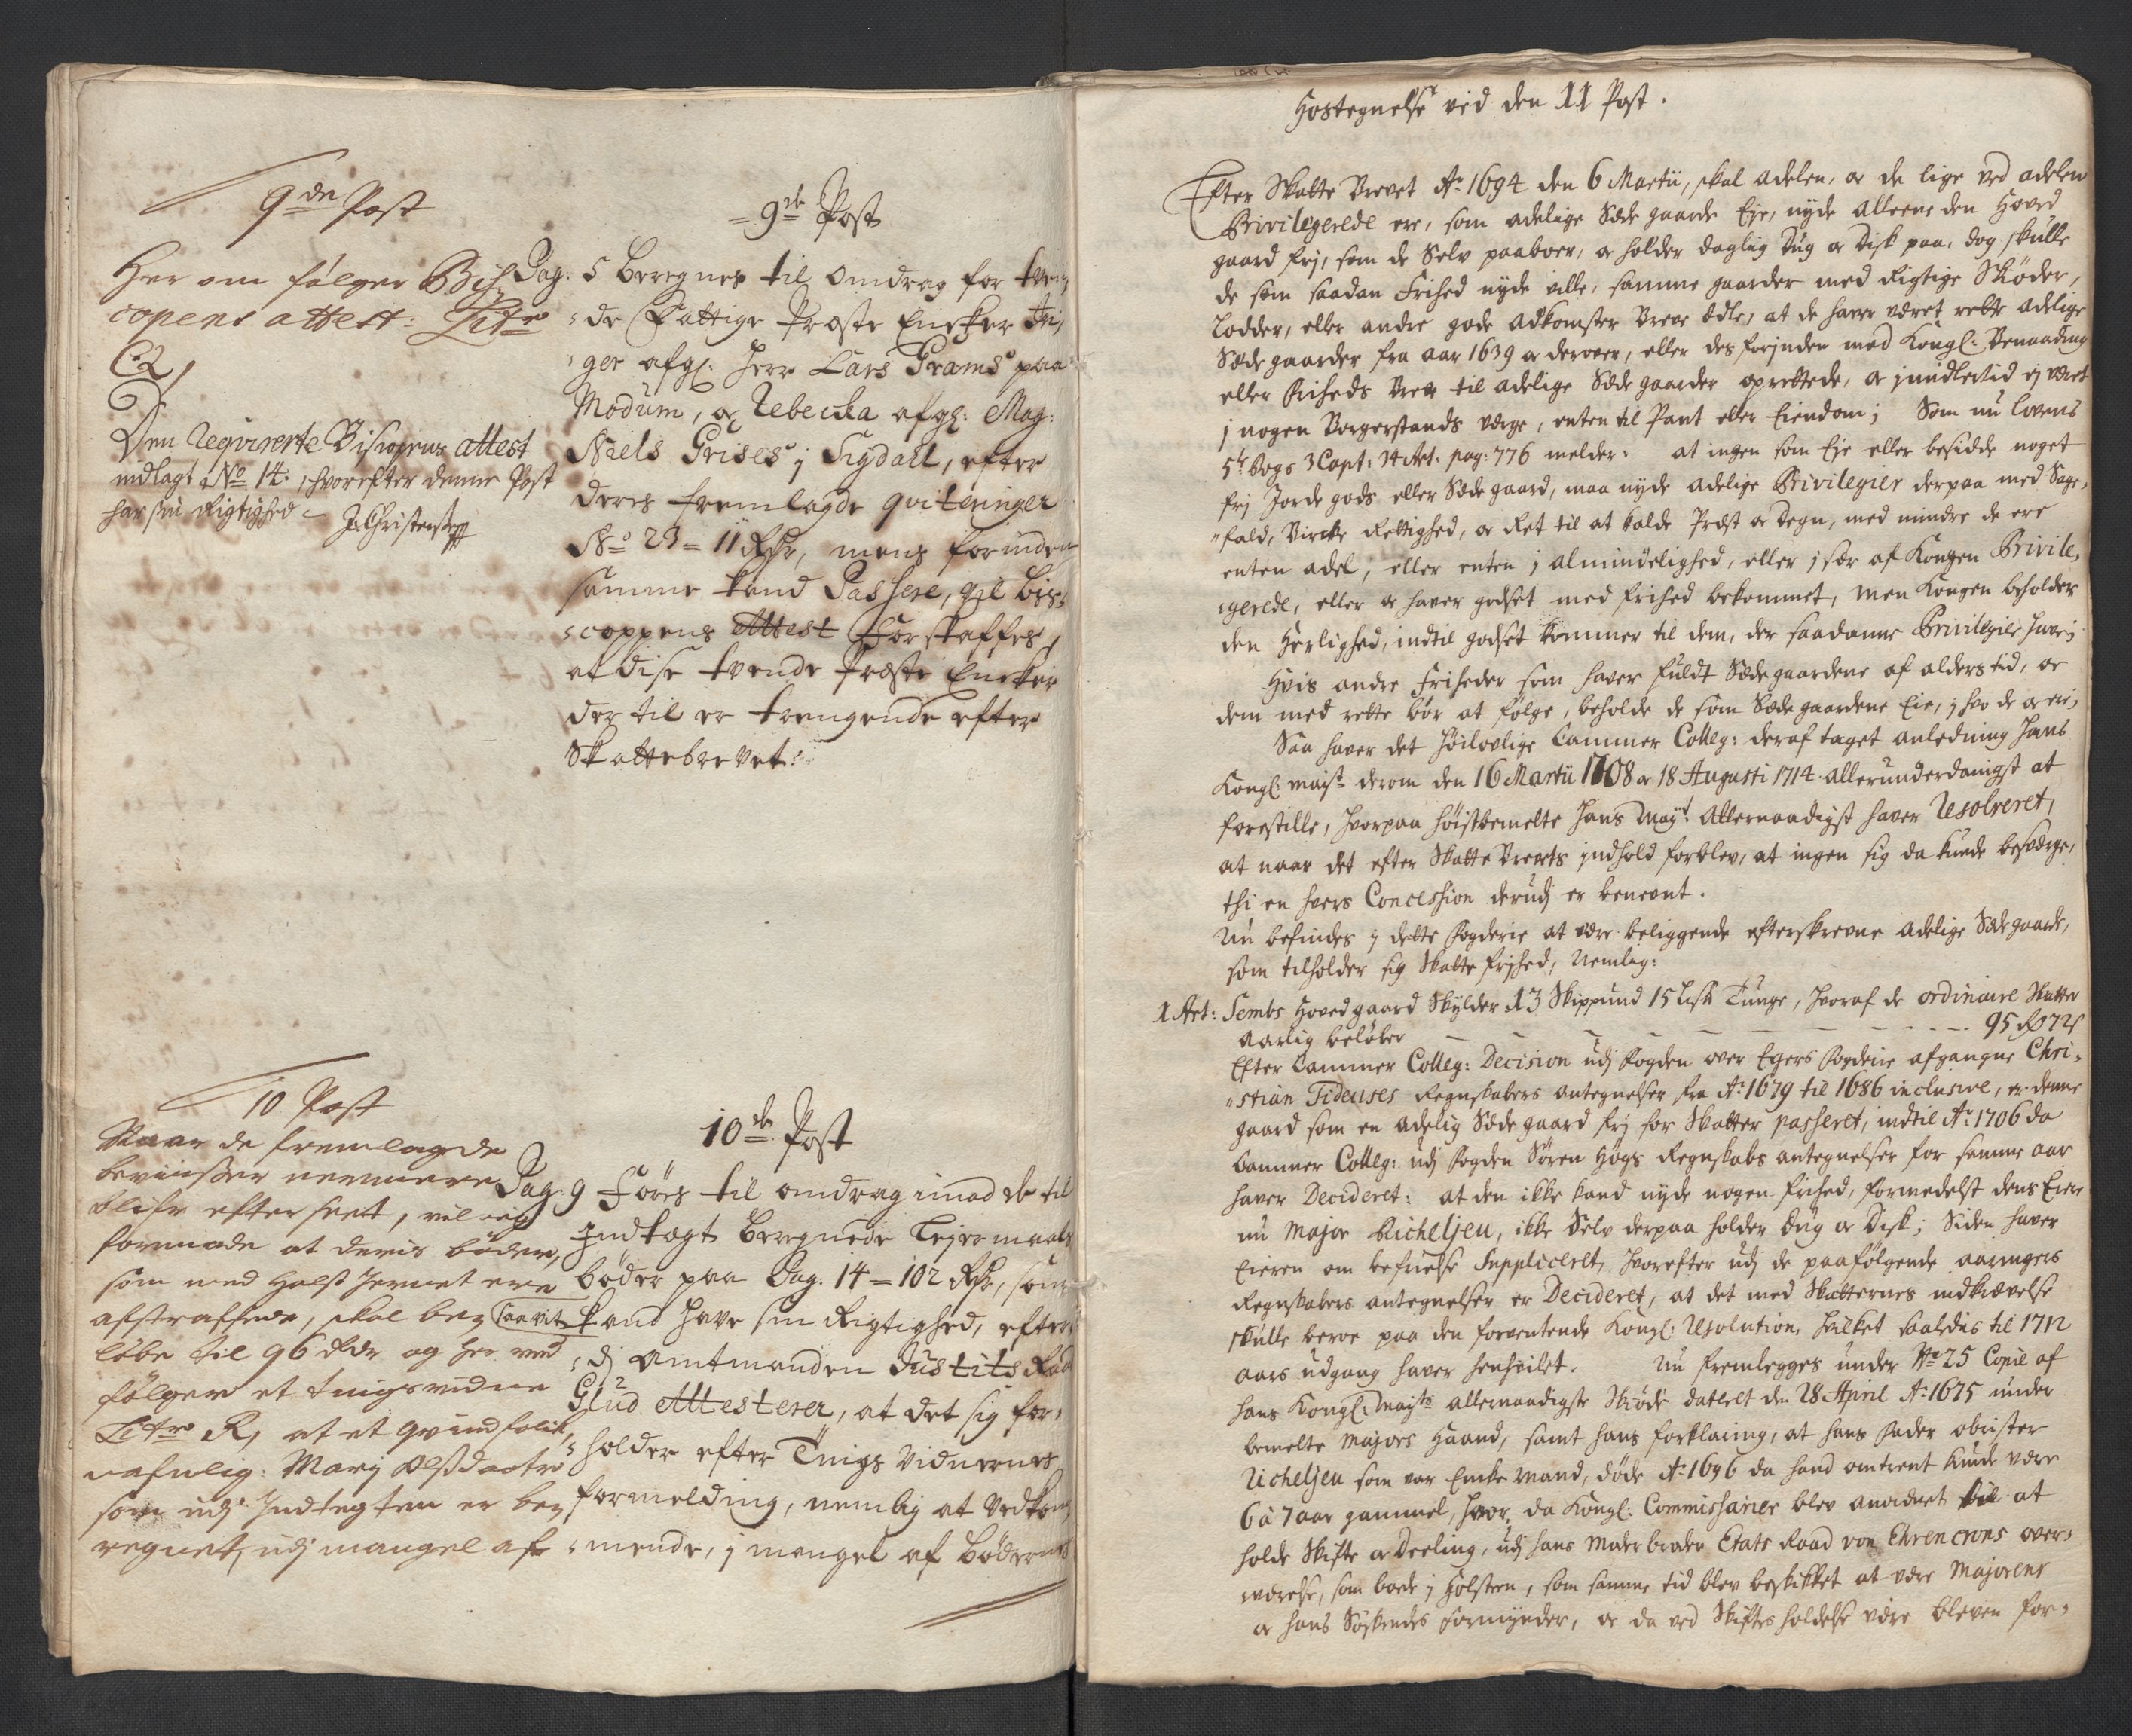 9de Post
Her om følger Bis-
copens attest: Litr
C2,
Den Reqvirerte Biscopens attest
indlagt No 14. hvorefter denne Post
har sin Rigtighed
J Christens
= 9de Post
Pag: 5 beregnes til omdrag for tven-
de fattige Præste Encker In-
ger afg: Herr Lars Grams paa
Modum, og Rebecka afg: Mag:
Niels Grises j Sigdall, efter
deres fremlagde qviteringer
No 23 = 11 Rdr, mens forinden
samme kand Passere, vil bis-
coppens Attest forskaffes,
at dise tvende Præste Encker
der til er trengende efter
Skattebrevet.
10 Post
Naar de fremlagde
bevisser nermere
blifr efterseet, vil ieg
formode at deris bøder,
som med Halsjernet ere
afstraffede, skal be-
løbe til 96 Rdr og her ved
følger et tingsvidne
Litr R, at et qvindfolk
nafnlig: Marj Olsdaatr
som udj Indtegten er be-
regnet, udj mangel af
10de Post
Pag: 9 føres til omdrag imod de til
Indtægt beregnede Lejermaals
bøder paa Pag: 14 = 102 Rdr, som
saavit kand have sin Rigtighed, efter-
dj Amtmanden Justits Raad
Glud Attesterer, at det sig for-
holder efter Tings Vidnernes
formelding, nemlig at Vedkom-
mende, j mangel af bødernes
Hostegnelse ved den 11 Post.
Efter Skatte Brevet Ao 1694 den 6 Martii, skal adelen, og de lige ved adelen
Privilegerede ere, som adelige Sæde gaarde Eje, nyde alleene den Hoved
gaard frj, som de Selv paaboer, og holder daglig Dug og Disk paa, dog skulle
de som saadan Frihed nyde ville, samme gaarder med Rigtige Skiøder,
Lodder, eller andre gode adkomster Breve ædle, at de haver været rette adelige
Sæde gaarder fra aar 1639 og derover, eller des forjnden med Kongl: Benaading
eller Friheds Brev til adelige Sæde gaarder oprettede, og jmidlertid ej været
j nogen Borgerstands værge, enten til Pant eller Eiendom; Som nu lovens
5te Bogs 3 Capt: 34 Art: pag: 776 melder: at ingen som Eje eller besidde noget
frj Jorde gods eller Sæde gaard, maa nyde adelige Privilegier derpaa med Sage-
fald, Bircke Rettighed, og Ret til at kalde Præst og Degn, med mindre de ere
enten adel, eller enten j almindelighed, eller jsær af Kongen Privile-
gerede, eller og haver godset med frihed bekommet, men Kongen beholder
den Herlighed, indtil godset kommer til dem, der saadanne Privilegier have;
Hvis andre Friheder som haver fuldt Sædegaardene af alders tid, og
dem med rette bør at følge, beholde de som Sædegaardene Eie, j hvo de og ere;
Saa haver det Høilovlige Cammer Colleg: deraf taget anledning Hans
Kongl: Mayst derom den 16 Martii 1708 og 18 Augusti 1714 allerunderdanigst at
forestille, hvorpaa høistbemelte Hans Mayt: Allernaadigst haver Resolveret,
at naar det efter Skatte Brevets jndhold forblev, at ingen sig da kunde besværge,
thi en hvers Concession derudj er benevnt.
Nu befindes j dette Fogderie at være beliggende efterskrevne adelige Sædegaarde,
som tilholder sig Skatte frjhed, Nemlig:
1 Art: Sembs Hovedgaard Skylder 13 Skippund 15 Lispd Tunge, hvoraf de ordinaire Skatter
aarlig beløber — — — — 95 Rd 72 s
Efter Cammer Colleg: Decision udj Fogden over Egers Fogderie afgangne Chri-
stian Tideuses Regnskabers antegnelser fra Ao 1679 til 1686 inclusive, er denne
gaard som en adelig Sæde gaard frj for Skatter passeret, indtil Ao 1706 da
Cammer Colleg: udj Fogden Søren Høgs Regnskabs antegnelser for samme aar
haver Decideret: at den ikke kand nyde nogen frihed, formedelst dens Eiere
nu Major Richeljeu, ikke Selv derpaa holder Dug og Disk; Siden haver
Eieren om befrielse Suppliceret, hvorefter udj de paafølgende aaringers
Regnskabers antegnelser er Decideret, at det med Skatternes indkrævelse
skulle beroe paa den forventende Kongl: Resolution, hvilket saaledis til 1712
aars udgang haver henhvilet. Nu fremlegges under No 25 Copie af
Hans Kongl: Mayts allernaadigste Skiøde dateret den 28 April Ao 1675 under
bemelte Majors Haand, samt hans forklaring, at hans Fader obrister
Richeljeu som var Encke Mand, døde Ao 1696 da hand omtrent kunde være
6 à 7 aar gammel, hvor da Kongl: Commissarier blev anordnet til at
holde Skifte og Deeling, udj hans Moderbroder Etats Raad von Ehrencrons over-
værelse, som boede j Holsteen, som samme tid blev beskikket at være Majorens
og hans Søskendes Formynder, og da ved Skiftes holdelse være bleven for-